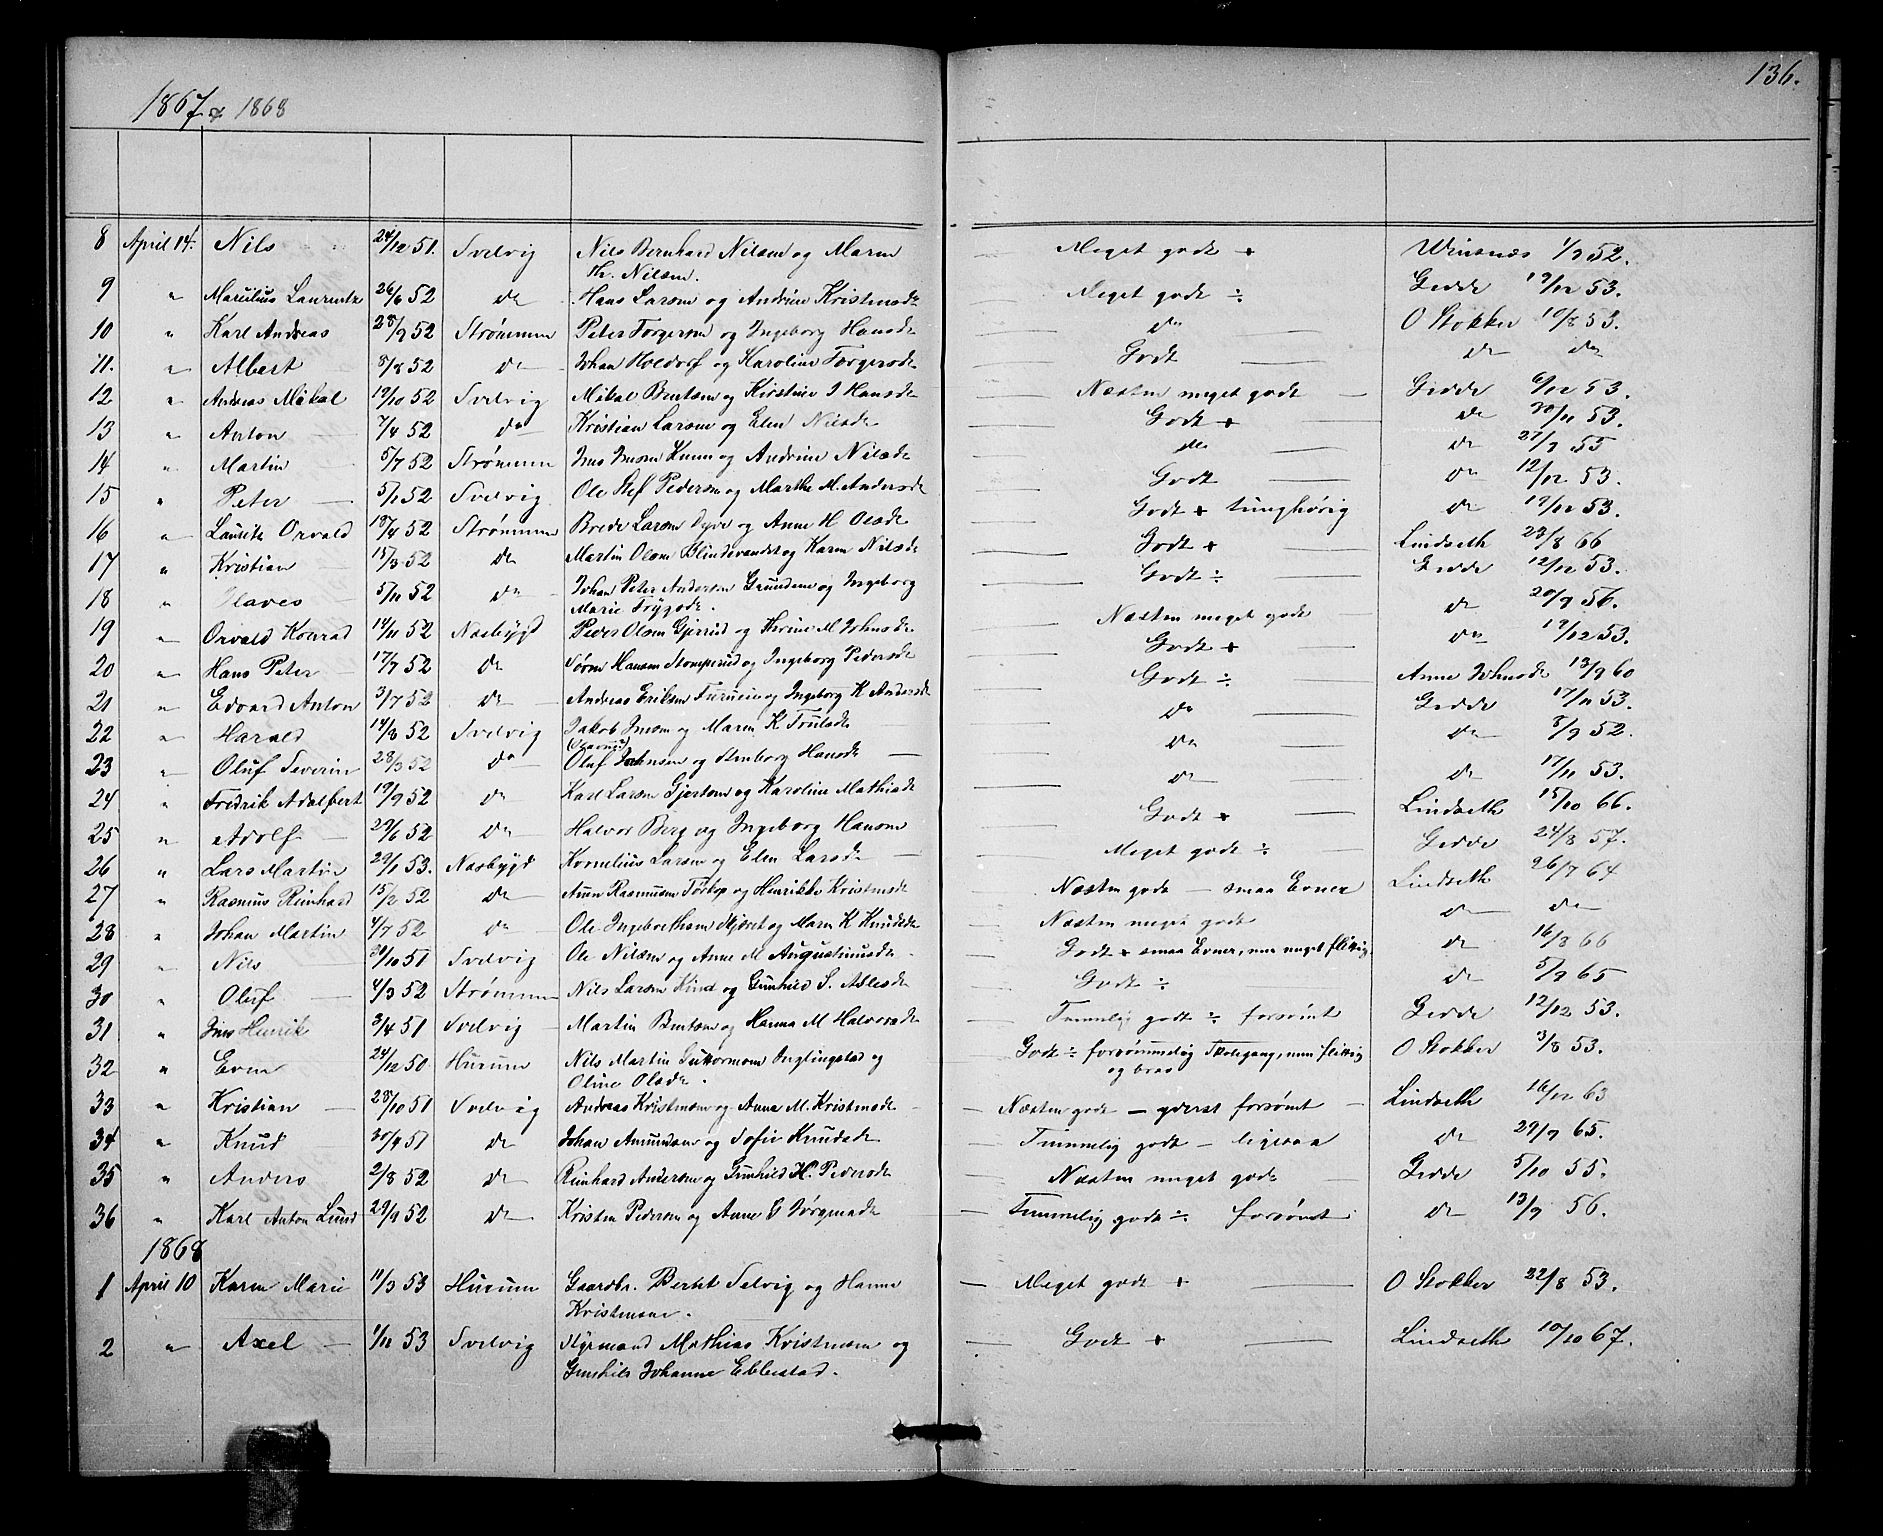 136.
1867 & 1868
8 April 14. Nils 24/12 51. Svelvig Nils Bernhard Nilsen og Maren Meget godt + Winsnes 1/9 52.
Kr. Nilsen.
9 " Marelius Laurentz 26/6 52 do Hans Larsen og Andrine Kristensdr Meget godt ÷ Gedde 19/12 53.
10 " Karl Andreas 28/9 52 Strømmen Peter Torgersen og Ingeborg Hansdr do O Stokker 10/8 53.
11. " Albert 8/8 52 do Johan Holdorf og Karoline Torgersdr Godt do do
12 " Andreas Mikal 19/10 52 Svelvig Mikal Bentsen og Kirstine J Hansdr Næsten meget godt — Gedde 6/12 53.
13 " Anton 7/4 52 do Kristian Larsen og Elen Nilsdr Godt + do 20/11 53.
14 " Martin 5/7 52 Strømmen Jens Jensen og Andrine Nilsdr do do 27/9 55
15 " Peter 5/1 52 Svelvig Ole Stef Pedersen og Marthe M. Andersdr Godt do 12/12 53.
16 " Lauritz Orvald 18/4 52 Strømmen Brede Larsen Dyve og Anne H Olsdr Godt + tunghørig do 19/12 53.
17 " Kristian 15/3 52 do Martin Olsen Blindevandet og Karen Nilsdr Godt + Lindseth 23/8 66
18 " Olaves 5/11 52 do Johan Peter Andersen Grundene og Ingeborg Godt ÷ Gedde 12/12 53.
Marie Trygsdr.
19 " Orvald Konrad 14/11 52 Nesbygd Peder Olsen Gjerrud og Thrine M Johnsdr Næsten meget godt do 20/9 56.
20 " Hans Peter 17/7 52 do Søren Hansen Stomperud og Ingeborg Pedersdr Godt + do 19/12 53.
21 " Edvard Anton 3/7 52 do Andreas Eriksen Furuein og Ingeborg K Andersdr Godt ÷ Anne Johnsdr 13/9 60
22 " Harald 14/8 52 Svelvig Jakob Jensen og Maren K Trulsdr do Gedde 17/11 53.
23 " Oluf Severin 28/3 52 do Oluf Johnsen og Ingeborg Hansdr — do do 8/9 52.
24 " Fredrik Adalbert 19/9 52 do Karl Larsen Gjertsen og Karoline Mathisdr do do 17/11 53.
25 " Adolf 29/6 52 do Halvor Berg og Ingeborg Hansen Godt + Lindseth 15/10 66.
26 " Lars Martin 29/1 53. Nesbygd Kornelius Larsen og Elen Larsdr — Meget godt ÷ Gedde 24/8 57.
27 " Rasmus Reinhard 15/2 52 do Aren Rasmusen Torkop og Henrikke Kristensdr Næsten godt — smaa Evner Lindseth 26/7 64
28 " Johan Martin 4/7 52 do Ole Ingebrethsen Skjøret og Maren K Knudsdr Næsten meget godt do do
29 " Nils 20/10 51 Svelvig Ole Nilsen og Anne M Augustinusdr Godt + smaa Evner, men meget flittig do 16/8 66
30 " Oluf 4/3 52 Strømmen Nils Larsen Kind og Gunhild S. Atlesdr Godt ÷ do 5/9 65
31 " Jens Henrik 3/4 51 Svelvig Martin Bentsen og Hanna M Halvorsdr Temmelig godt ÷ forsømt Gedde 12/12 53.
32 " Even 24/12 50 Husum Nils Martin Guttormsen Inglingstad og Godt ÷ forsømmelig Skolegang, men flittig O Stokker 3/8 53.
Oline Olsdr. og brav
33 " Kristian 28/10 51 Svelvig Andreas Kristensen og Anne M. Kristensdr Næsten godt — yderst forsømt — Lindseth 16/12 63
34 " Knud 30/4 51 do Johan Amundsen og Sofie Knudsdr Temmelig godt — ligesaa do 29/9 65.
35 " Anders 2/8 52 do Reinhard Andersen og Gunhild H. Pedersdr Næsten meget godt Gedde 5/10 55.
36 " Karl Anton Lund 29/9 52 do Kristen Pedersen og Anne G Jørgensdr Temmelig godt ÷ forsømt do 13/9 56.
1868
1 April 10 Karen Marie 11/3 53 Husum Gaardbr. Bertel Selvig og Hanne Meget godt + O Stokker 22/8 53.
Kristensen.
2 " Axel 1/11 53 Svelvig Styrmand Mathias Kristensen og Godt + Lindseth 10/10 67.
Gunhild Johanne Ebbestad.